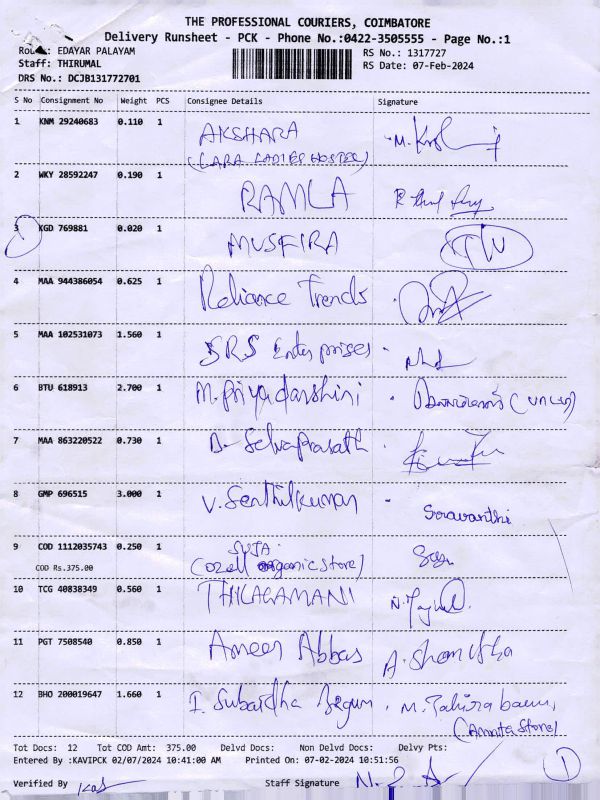 THE PROFESSIONAL COURIERS, COIMBATORE
Delivery Runsheet - PCK - Phone No.:0422-3505555 - Page No.:1
EDAYAR PALAYAM RS No.: 1317727
Staff: THIRUMAL RS Date: 07-Feb-2024
DRS No.: DCJB131772701
S No Consignment No Weight PCS Consignee Details Signature
1 KNM 29240683 0.110 1 AKSHARA
(LARA LADIES HOSTEL)
2 WKY 28592247 0.190 1 RAMLA
3 KGD 769881 0.020 1 MUSFIRA
4 MAA 944386054 0.625 1 Reliance Trends
5 MAA 102531073 1.560 1 SRS Enterprises
6 BTU 618913 2.700 1 M. Priyadarshini
7 MAA 863220522 0.730 1 Selvaprasath
8 GMP 696515 3.000 1 V. Senthilkumar Soravanthi
9 COD 1112035743 0.250 1 SUJA
COD Rs.375.00 (Ozell organic store)
10 TCG 40838349 0.560 1 THILAGAMANI
11 PGT 7508540 0.850 1 Ameer Abbas
12 BHO 200019647 1.660 1 I. Subaidha Begum
Tot Docs: 12 Tot COD Amt: 375.00 Delvd Docs: Non Delvd Docs: Delvy Pts:
Entered By :KAVIPCK 02/07/2024 10:41:00 AM Printed On: 07-02-2024 10:51:56
1
Verified By Staff Signature